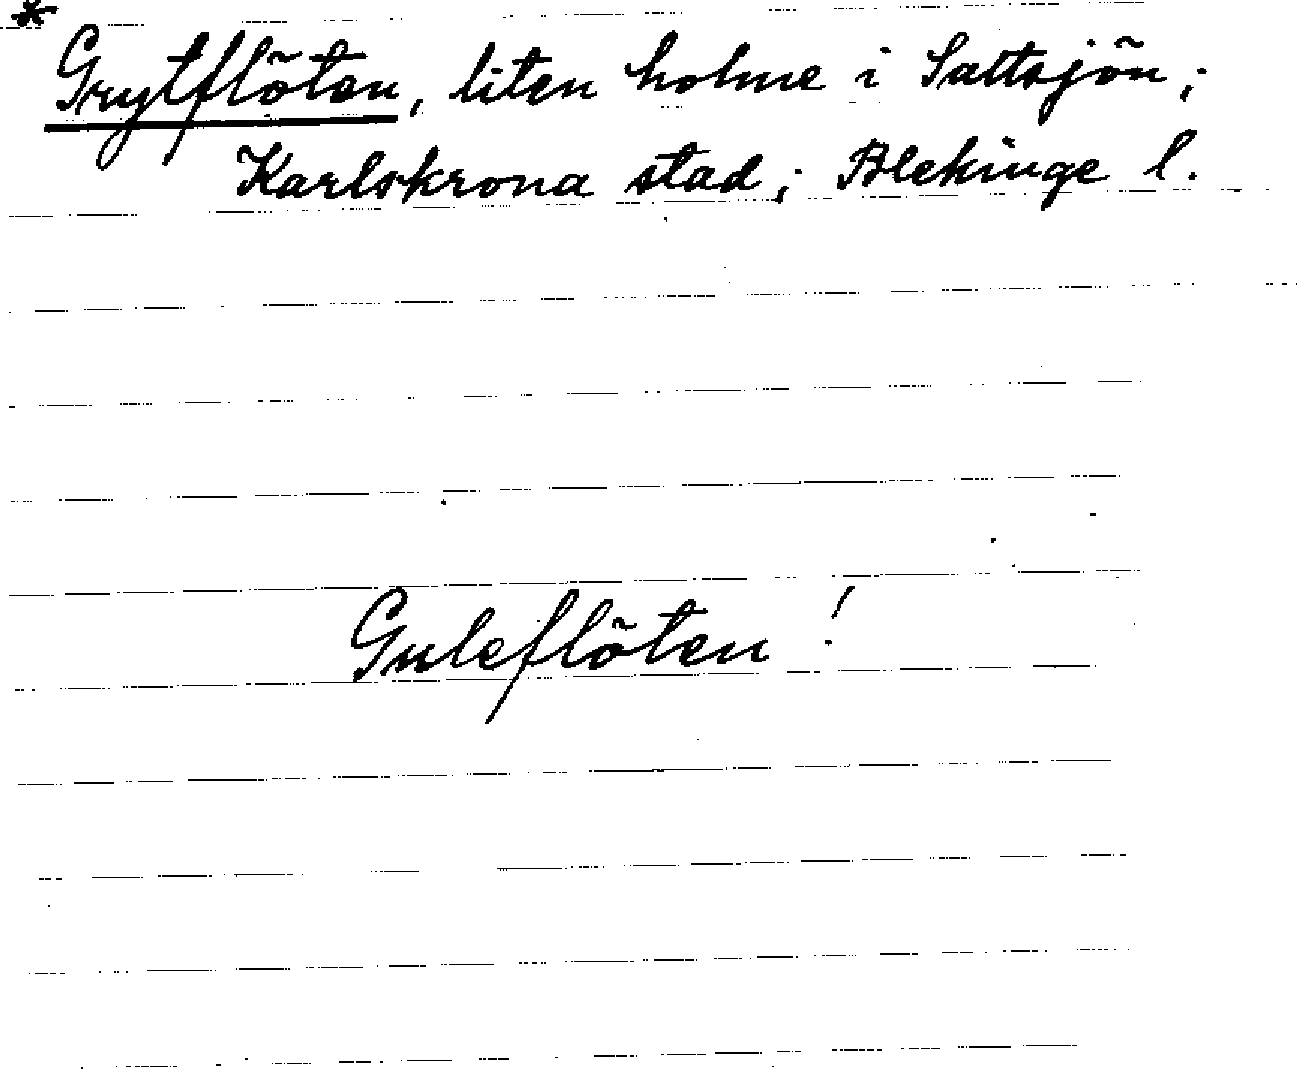 *
Grytflöten, liten holme i Saltsjön;
Karlskrona stad; Blekinge l.
Guleflöten!